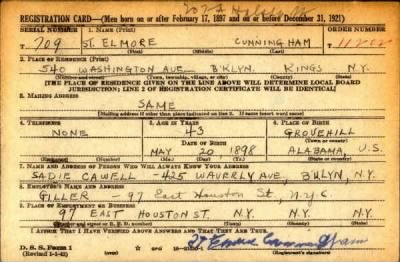 REGISTRATION CARD—(Men born on or after February 17, 1897 and on or before December 31, 1921)
SERIAL NUMBER 1. NAME (Print) ORDER NUMBER
T 709 ST. ELMORE CUNNINGHAM
2. PLACE OF RESIDENCE (Print)
540 WASHINGTON AVE B'KLYN. KINGS N.Y.
(Number and street) (Town, township, village, or city) (County) (State)
[THE PLACE OF RESIDENCE GIVEN ON THE LINE ABOVE WILL DETERMINE LOCAL BOARD
JURISDICTION; LINE 2 OF REGISTRATION CERTIFICATE WILL BE IDENTICAL]
3. MAILING ADDRESS
SAME
[Mailing address if other than place indicated on line 2. If same insert word same]
4. TELEPHONE 5. AGE IN YEARS 6. PLACE OF BIRTH
NONE 43 GROVEHILL
DATE OF BIRTH
MAY 20, 1898 ALABAMA, U.S.
7. NAME AND ADDRESS OF PERSON WHO WILL ALWAYS KNOW YOUR ADDRESS
SADIE CAWELL - 425 WAVERLY AVE, B'KLYN, N.Y.
8. EMPLOYER'S NAME AND ADDRESS
GILLER 97 East Houston St, N.Y.C
9. PLACE OF EMPLOYMENT OR BUSINESS
97 EAST HOUSTON ST. N.Y. N.Y.
(Number and street or R. F. D. number) (Town) (County) (State)
I AFFIRM THAT I HAVE VERIFIED ABOVE ANSWERS AND THAT THEY ARE TRUE.
D. S. S. Form 1
(Revised 1-1-42) (Registrant's signature)